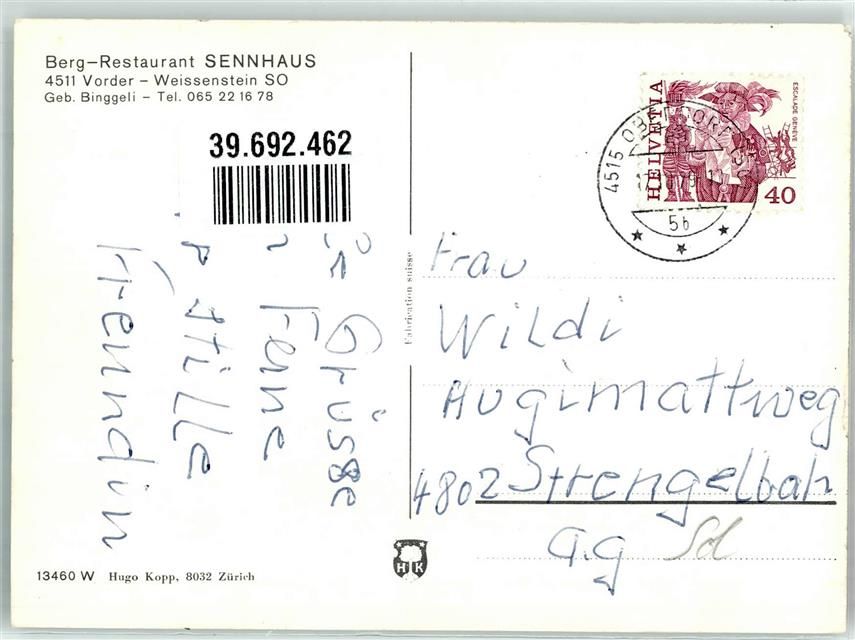 Berg-Restaurant SENNHAUS
4511 Vorder - Weissenstein SO
Geb. Binggeli - Tel. 065 22 16 78
39.692.462
Grüsse
Fene
stille
Freundin
Fabrication suisse
HELVETIA
ESCALADE GENÈVE
40
4515 OBERDORF
5b
Frau
Wildi
Hugimattweg
4802 Strengelbah
a.g Sd
H K
13460 W Hugo Kopp, 8032 Zürich